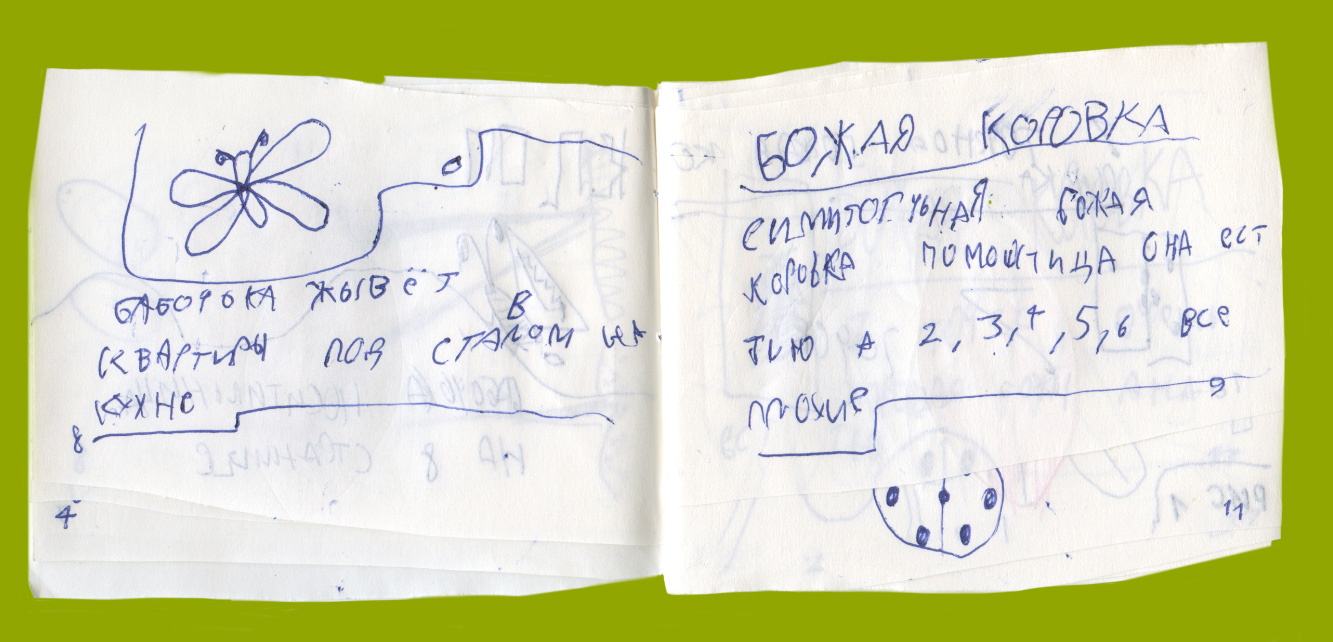 БАБОЧЬКА ЖЫВЁТ
В
КВАРТИРЫ ПОД СТАЛОМ НА
КУХНЕ
8
4
БОЖАЯ КОРОВКА
СИМИТОЧЬНАЯ БОЖАЯ
КОРОВКА ПОМОШТИЦА ОНА ЕСТ
ТЛЮ А 2, 3, 4, 5, 6 ВСЕ
ПЛОХИЕ
9
11